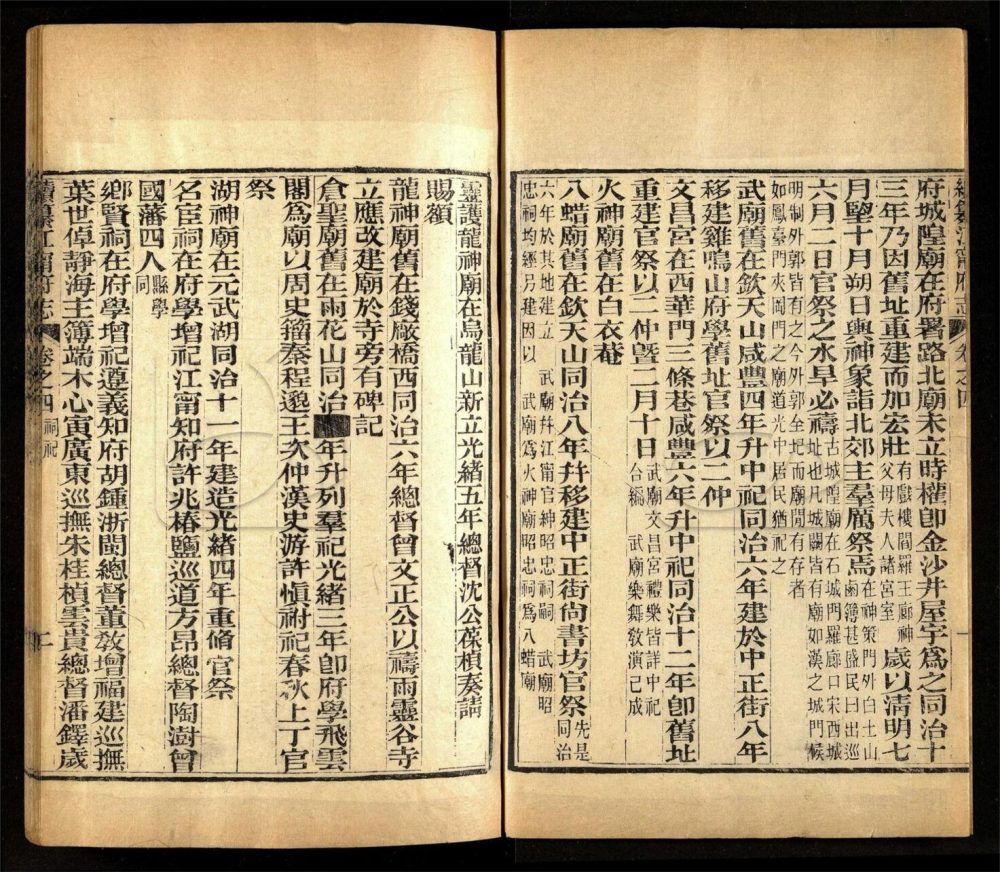 府城隍廟在府署路北廟未立時權卽金沙井屋宇爲之同治十
三年乃因舊址重建而加宏壯有戲樓閻羅王廊神父母夫人諸宮室歲以清明七
月朢十月朔日輿神象詣北郊主羣厲祭焉在神策門外白土山鹵簿甚盛民曰出巡
六月二日官祭之水旱必禱古城隍廟在石城門羅廊口宋西城址也凡城闉皆有廟如漢之城門候
明制外郭皆有之今外郭全圮而廟閒有存者
如鳳臺門夾岡門之廟道光中居民猶祀之
武廟舊在欽天山咸豐四年升中祀同治六年建於中正街八年
移建雞鳴山府學舊址官祭以二仲
文昌宮在西華門三條巷咸豐六年升中祀同治十二年卽舊址
重建官祭以二仲曁二月十日武廟文昌宮禮樂皆詳中祀合編武廟樂舞敎演已成
火神廟舊在白衣菴
八蜡廟舊在欽天山同治八年幷移建中正街尙書坊官祭先是同治
六年於其地建立武廟幷江甯官紳昭忠祠嗣武廟昭
忠祠均經另建因以武廟爲火神廟昭忠祠爲八蜡廟
續纂江甯府志 卷之四 一
靈護龍神廟在烏龍山新立光緖五年總督沈公葆楨奏請
賜額
龍神廟舊在錢廠橋西同治六年總督曾文正公以禱雨靈谷寺
立應改建廟於寺旁有碑記
倉聖廟舊在雨花山同治年升列羣祀光緖三年卽府學飛雲
閣爲廟以周史籀秦程邈王次仲漢史游許愼祔祀春秋上丁官
祭
湖神廟在元武湖同治十一年建造光緖四年重脩官祭
名臣祠在府學增祀江甯知府許兆椿鹽巡道方昂總督陶澍曾
國藩四人縣學同
鄉賢祠在府學增祀遵義知府胡鍾浙閩總督董敎增福建巡撫
葉世倬靜海主簿端木心寅廣東巡撫朱桂楨雲貴總督潘鐸歲
續纂江甯府志 卷之四 祠祀 二